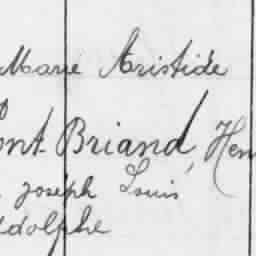 Marie Aristide
ont Briand, Hen
Joseph Louis
dolphe